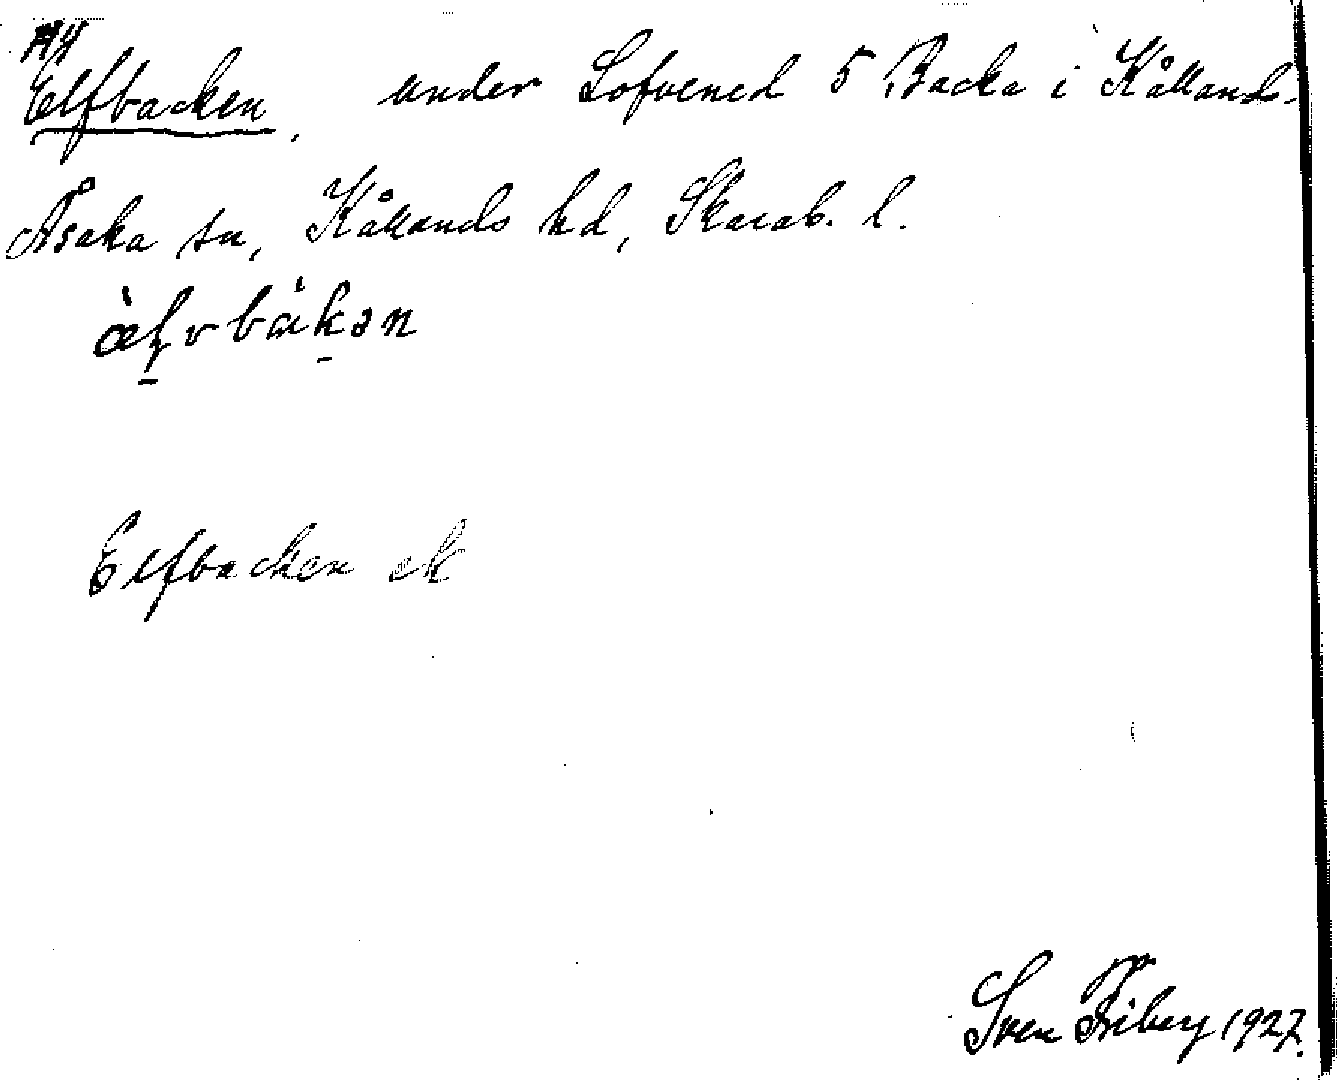 Elfbacken, under Lofvened 5 Backa i Kållands-
Åsaka sn, Kållands hd, Skarab. l.
æ̀lvbàkən
Elfbacken ek
Sven Friberg 1927.